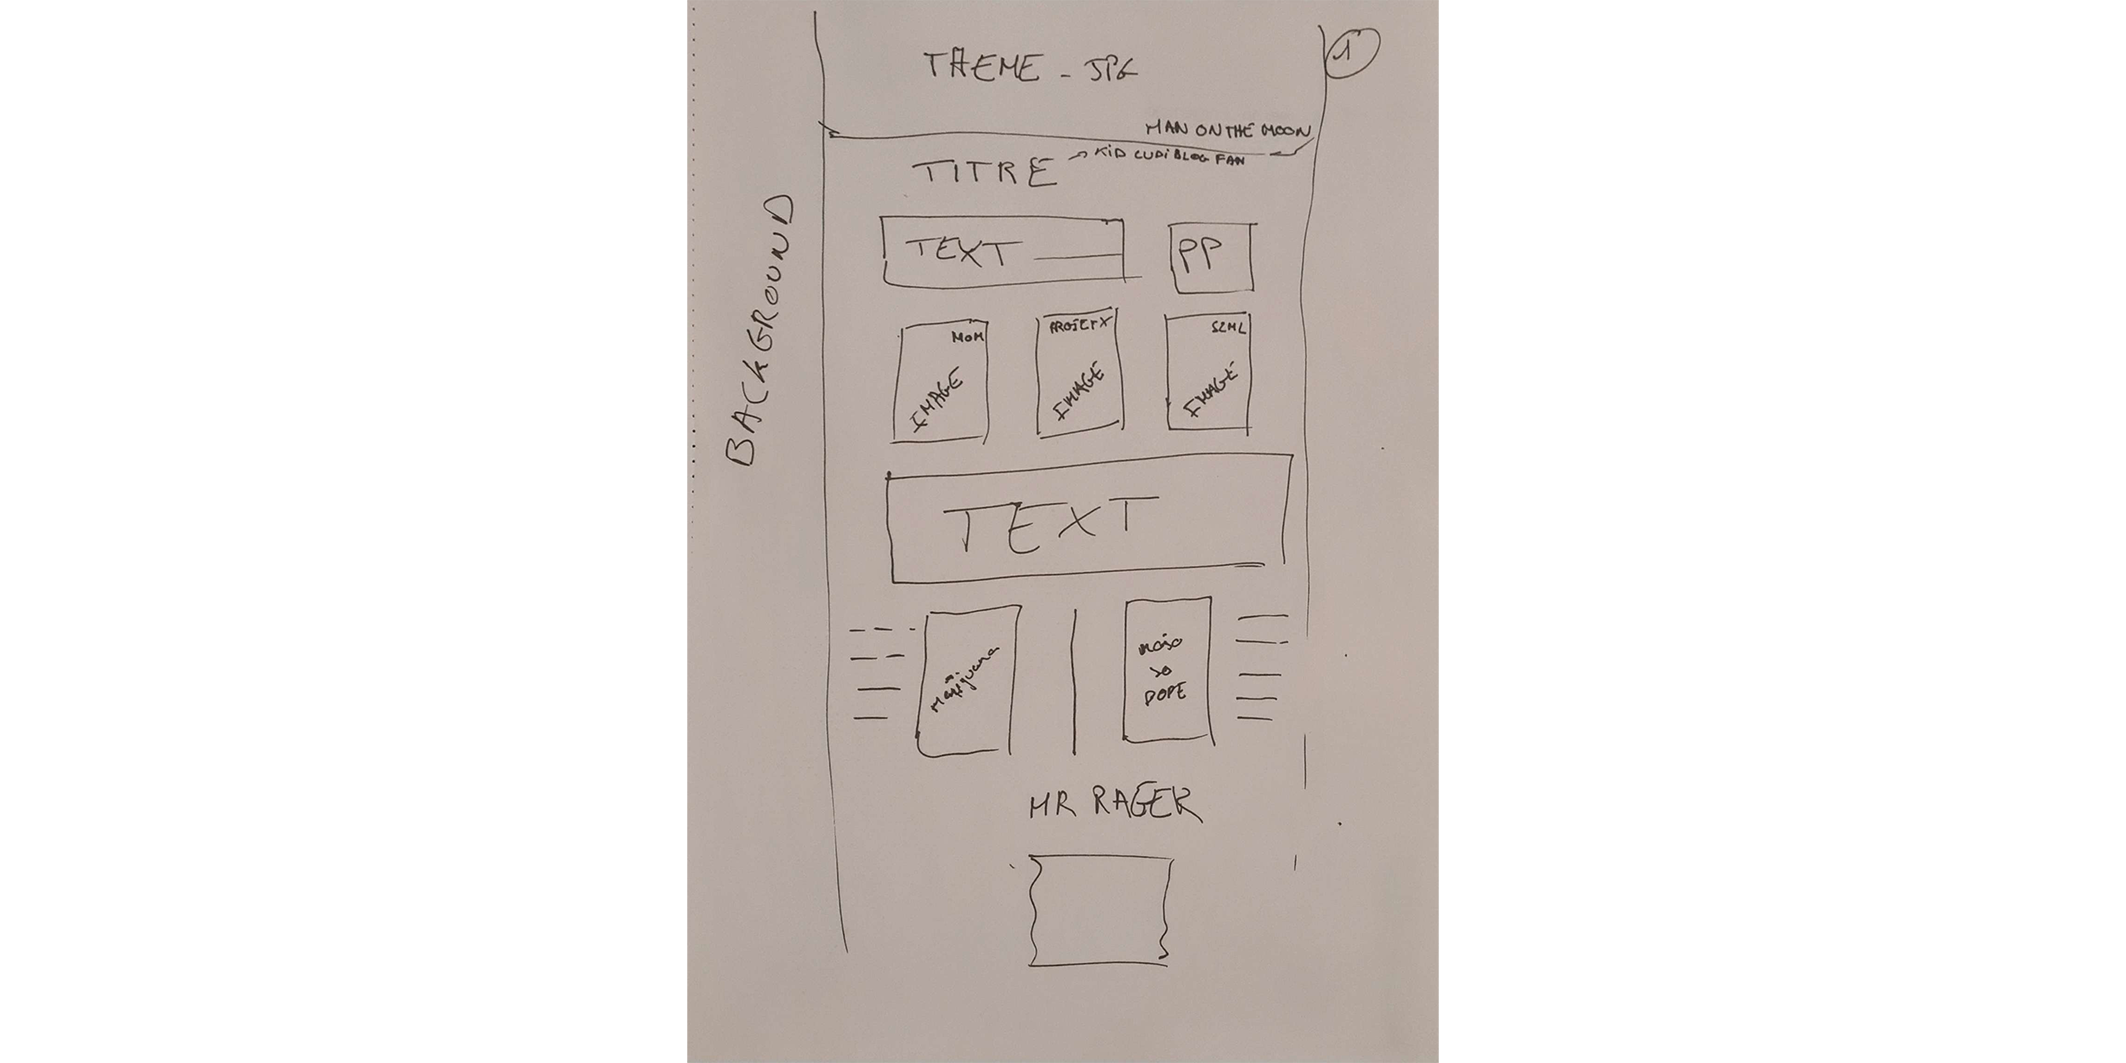 1
THEME - JPG
MAN ON THE MOON
TITRE
KiD CUDi BLOG FAN
BACKGROUND
TEXT
PP
MOM
IMAGE
PROJETX
IMAGE
IMAGE
TEXT
Marijuana
DOPE
MR RAGER